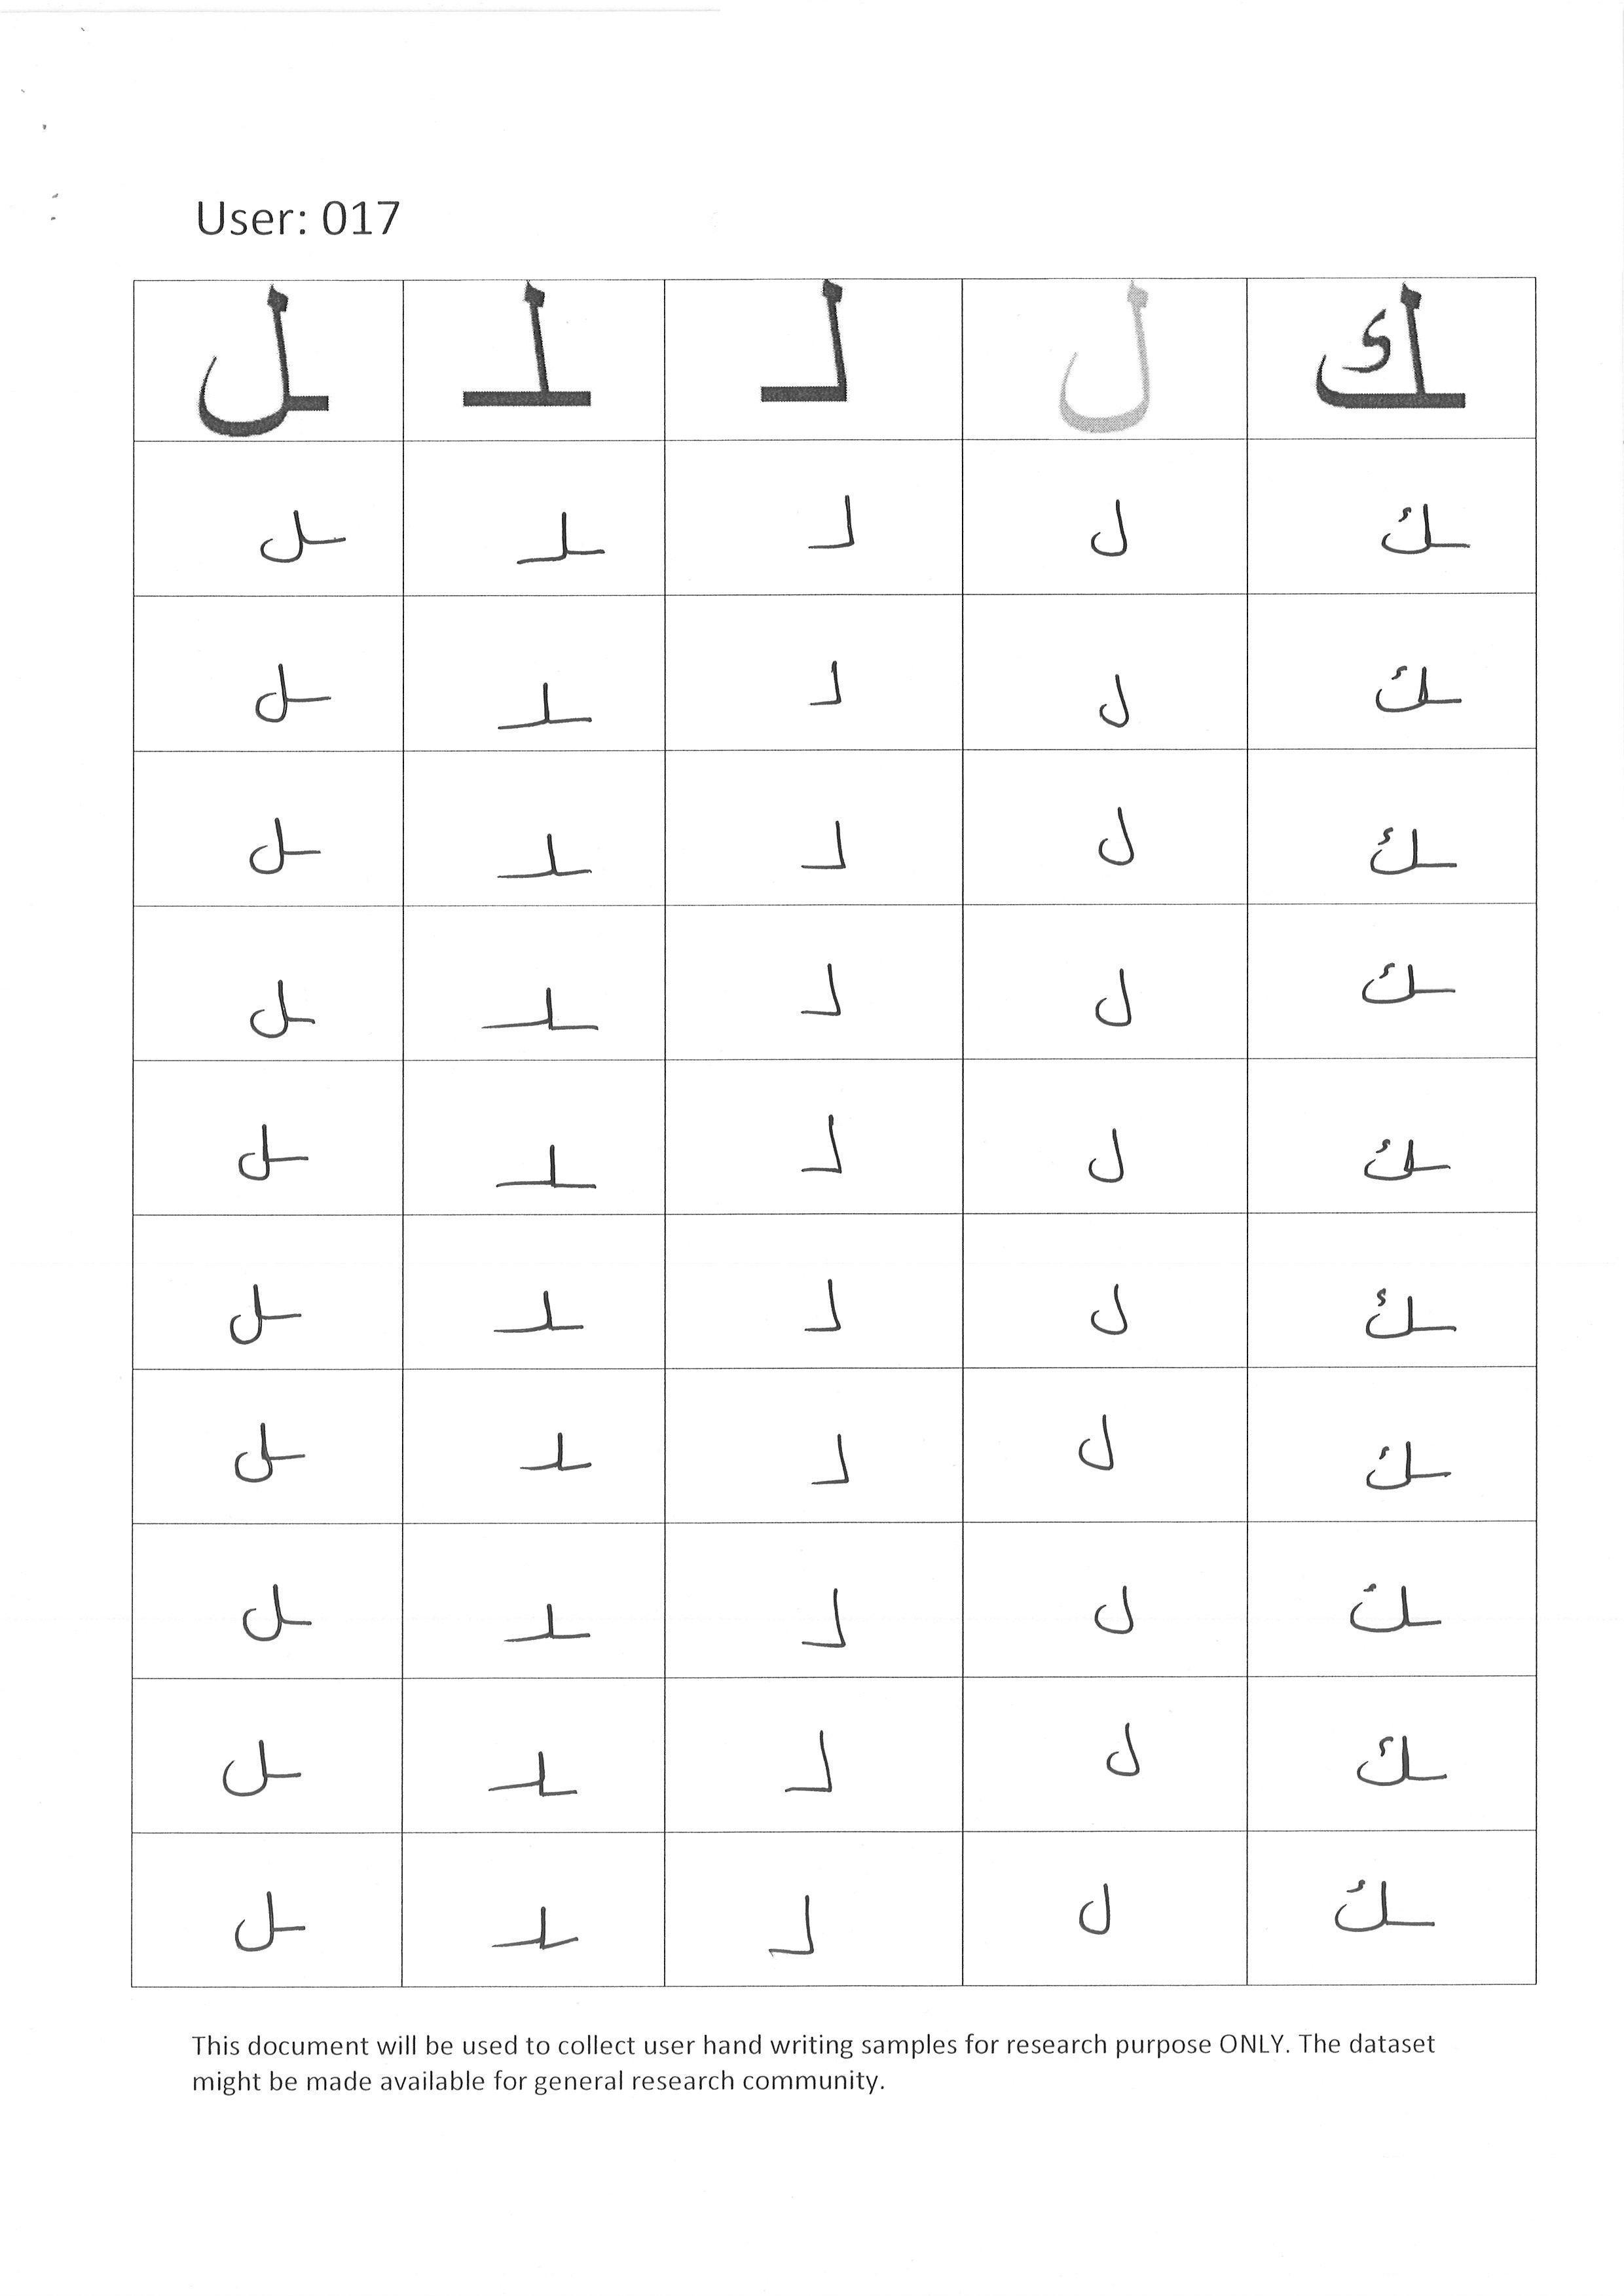 User: 017
ـل ـلـ لـ ل ـك
ـل ـلـ لـ ل ـك
ـل ـلـ لـ ل ـك
ـل ـلـ لـ ل ـك
ـل ـلـ لـ ل ـك
ـل ـلـ لـ ل ـك
ـل ـلـ لـ ل ـك
ـل ـلـ لـ ل ـك
ـل ـلـ لـ ل ـك
ـل ـلـ لـ ل ـك
ـل ـلـ لـ ل ـك
This document will be used to collect user hand writing samples for research purpose ONLY. The dataset
might be made available for general research community.